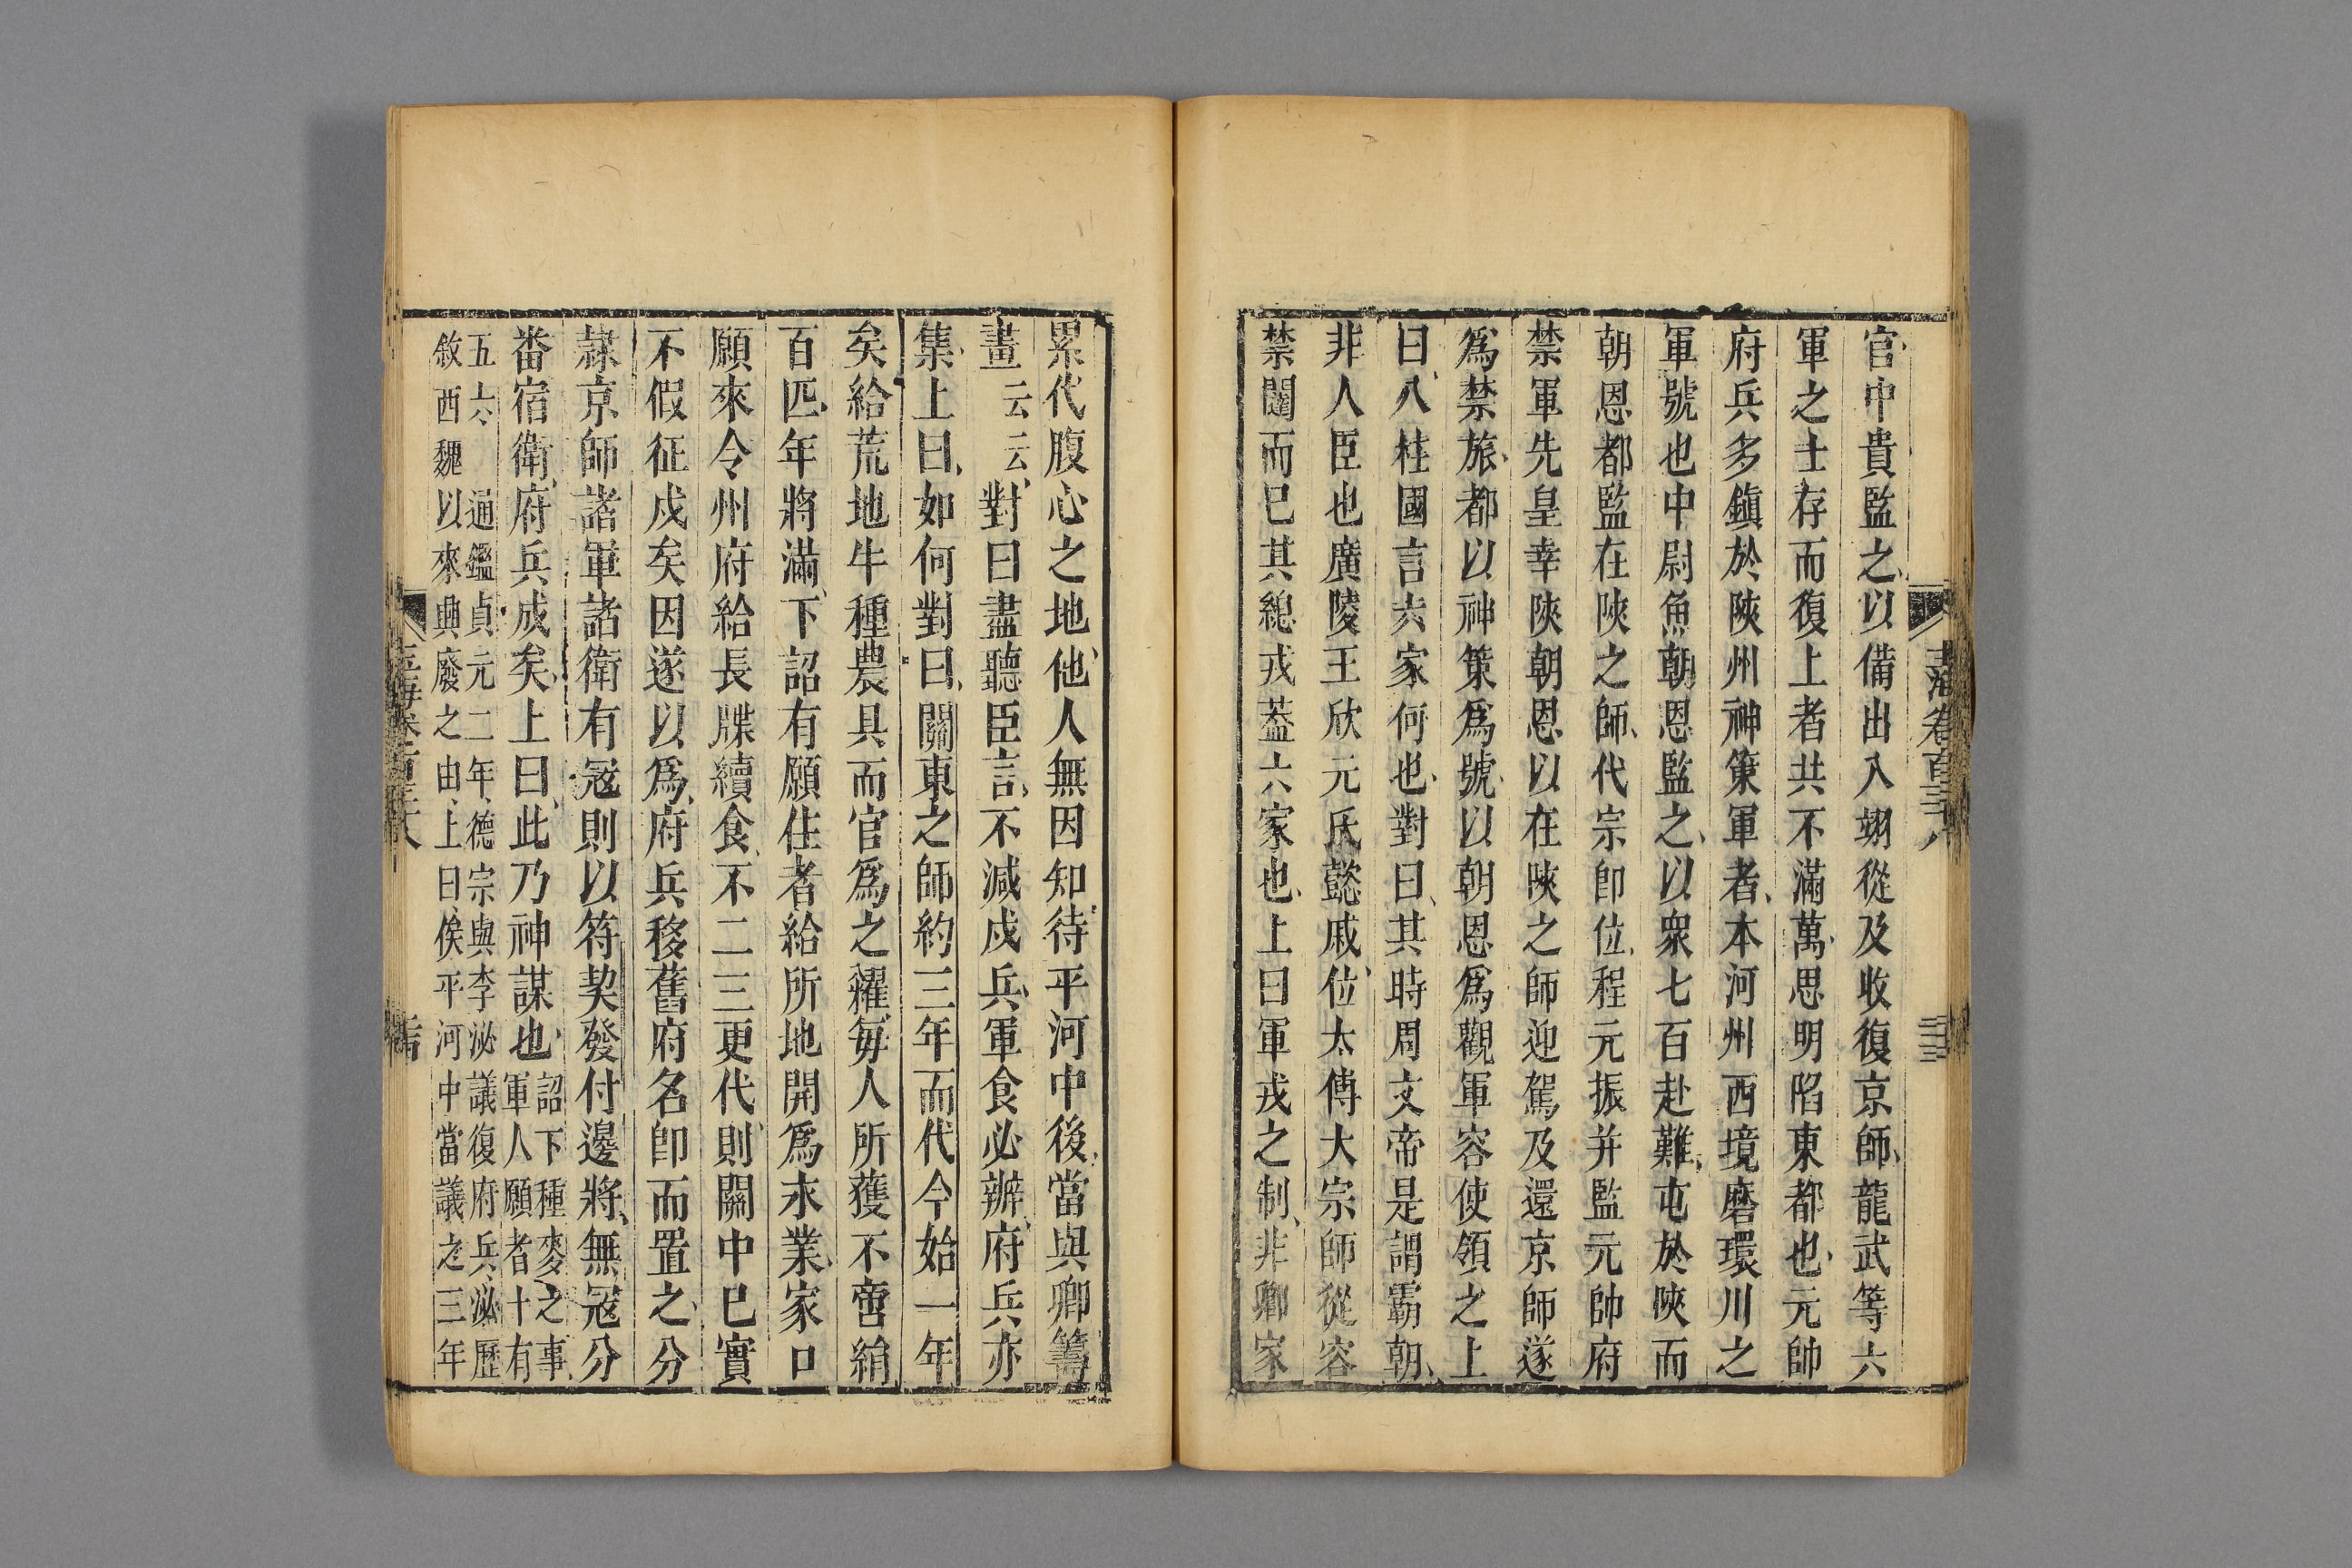 官中貴監之以備出入翊從及收復京師龍武等六
軍之士存而復上者共不滿萬思明陷東都也元帥
府兵多鎮於陝州神策軍者本河州西境磨環川之
軍號也中尉魚朝恩監之以衆七百赴難屯於陝而
朝恩都監在陝之師代宗卽位程元振并監元帥府
禁軍先皇幸陝朝恩以在陝之師迎駕及還京師遂
爲禁旅都以神策爲號以朝恩爲觀軍容使領之上
曰八柱國言六家何也對曰其時周文帝是謂霸朝
非人臣也廣陵王欣元氏懿戚位太傅大宗師從容
禁闥而已其緫戎葢六家也上曰軍戎之制非卿家
累代腹心之地他人無因知待平河中後當與卿籌
畫云云對曰盡聽臣言不減戍兵軍食必辦府兵亦
集上曰如何對曰關東之師約三年而代今始一年
矣給荒地牛種農具而官爲之糴每人所獲不啻絹
百匹年將滿下詔有願住者給所地開爲永業家口
願來令州府給長牒續食不二三更代則關中已實
不假征戍矣因遂以爲府兵移舊府名卽而置之分
隷京師諸軍諸衛有寇則以符契發付邊將無寇分
番宿衛府兵成矣上曰此乃神謀也詔下種麥之事
軍人願者十有
五六 通鑑貞元二年德宗與李泌議復府兵泌歷
敘西魏以來興廢之由上曰俟平河中當議之三年